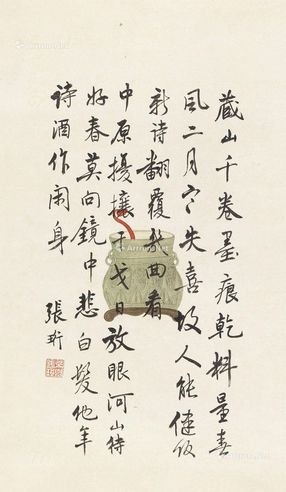 藏山千卷墨痕乾料量春
風二月寒失喜故人能健饭
新诗翻覆曲看
中原擾攘干戈日放眼河山待
好春莫向鏡中悲白髮他年
诗酒作闲身
張珩